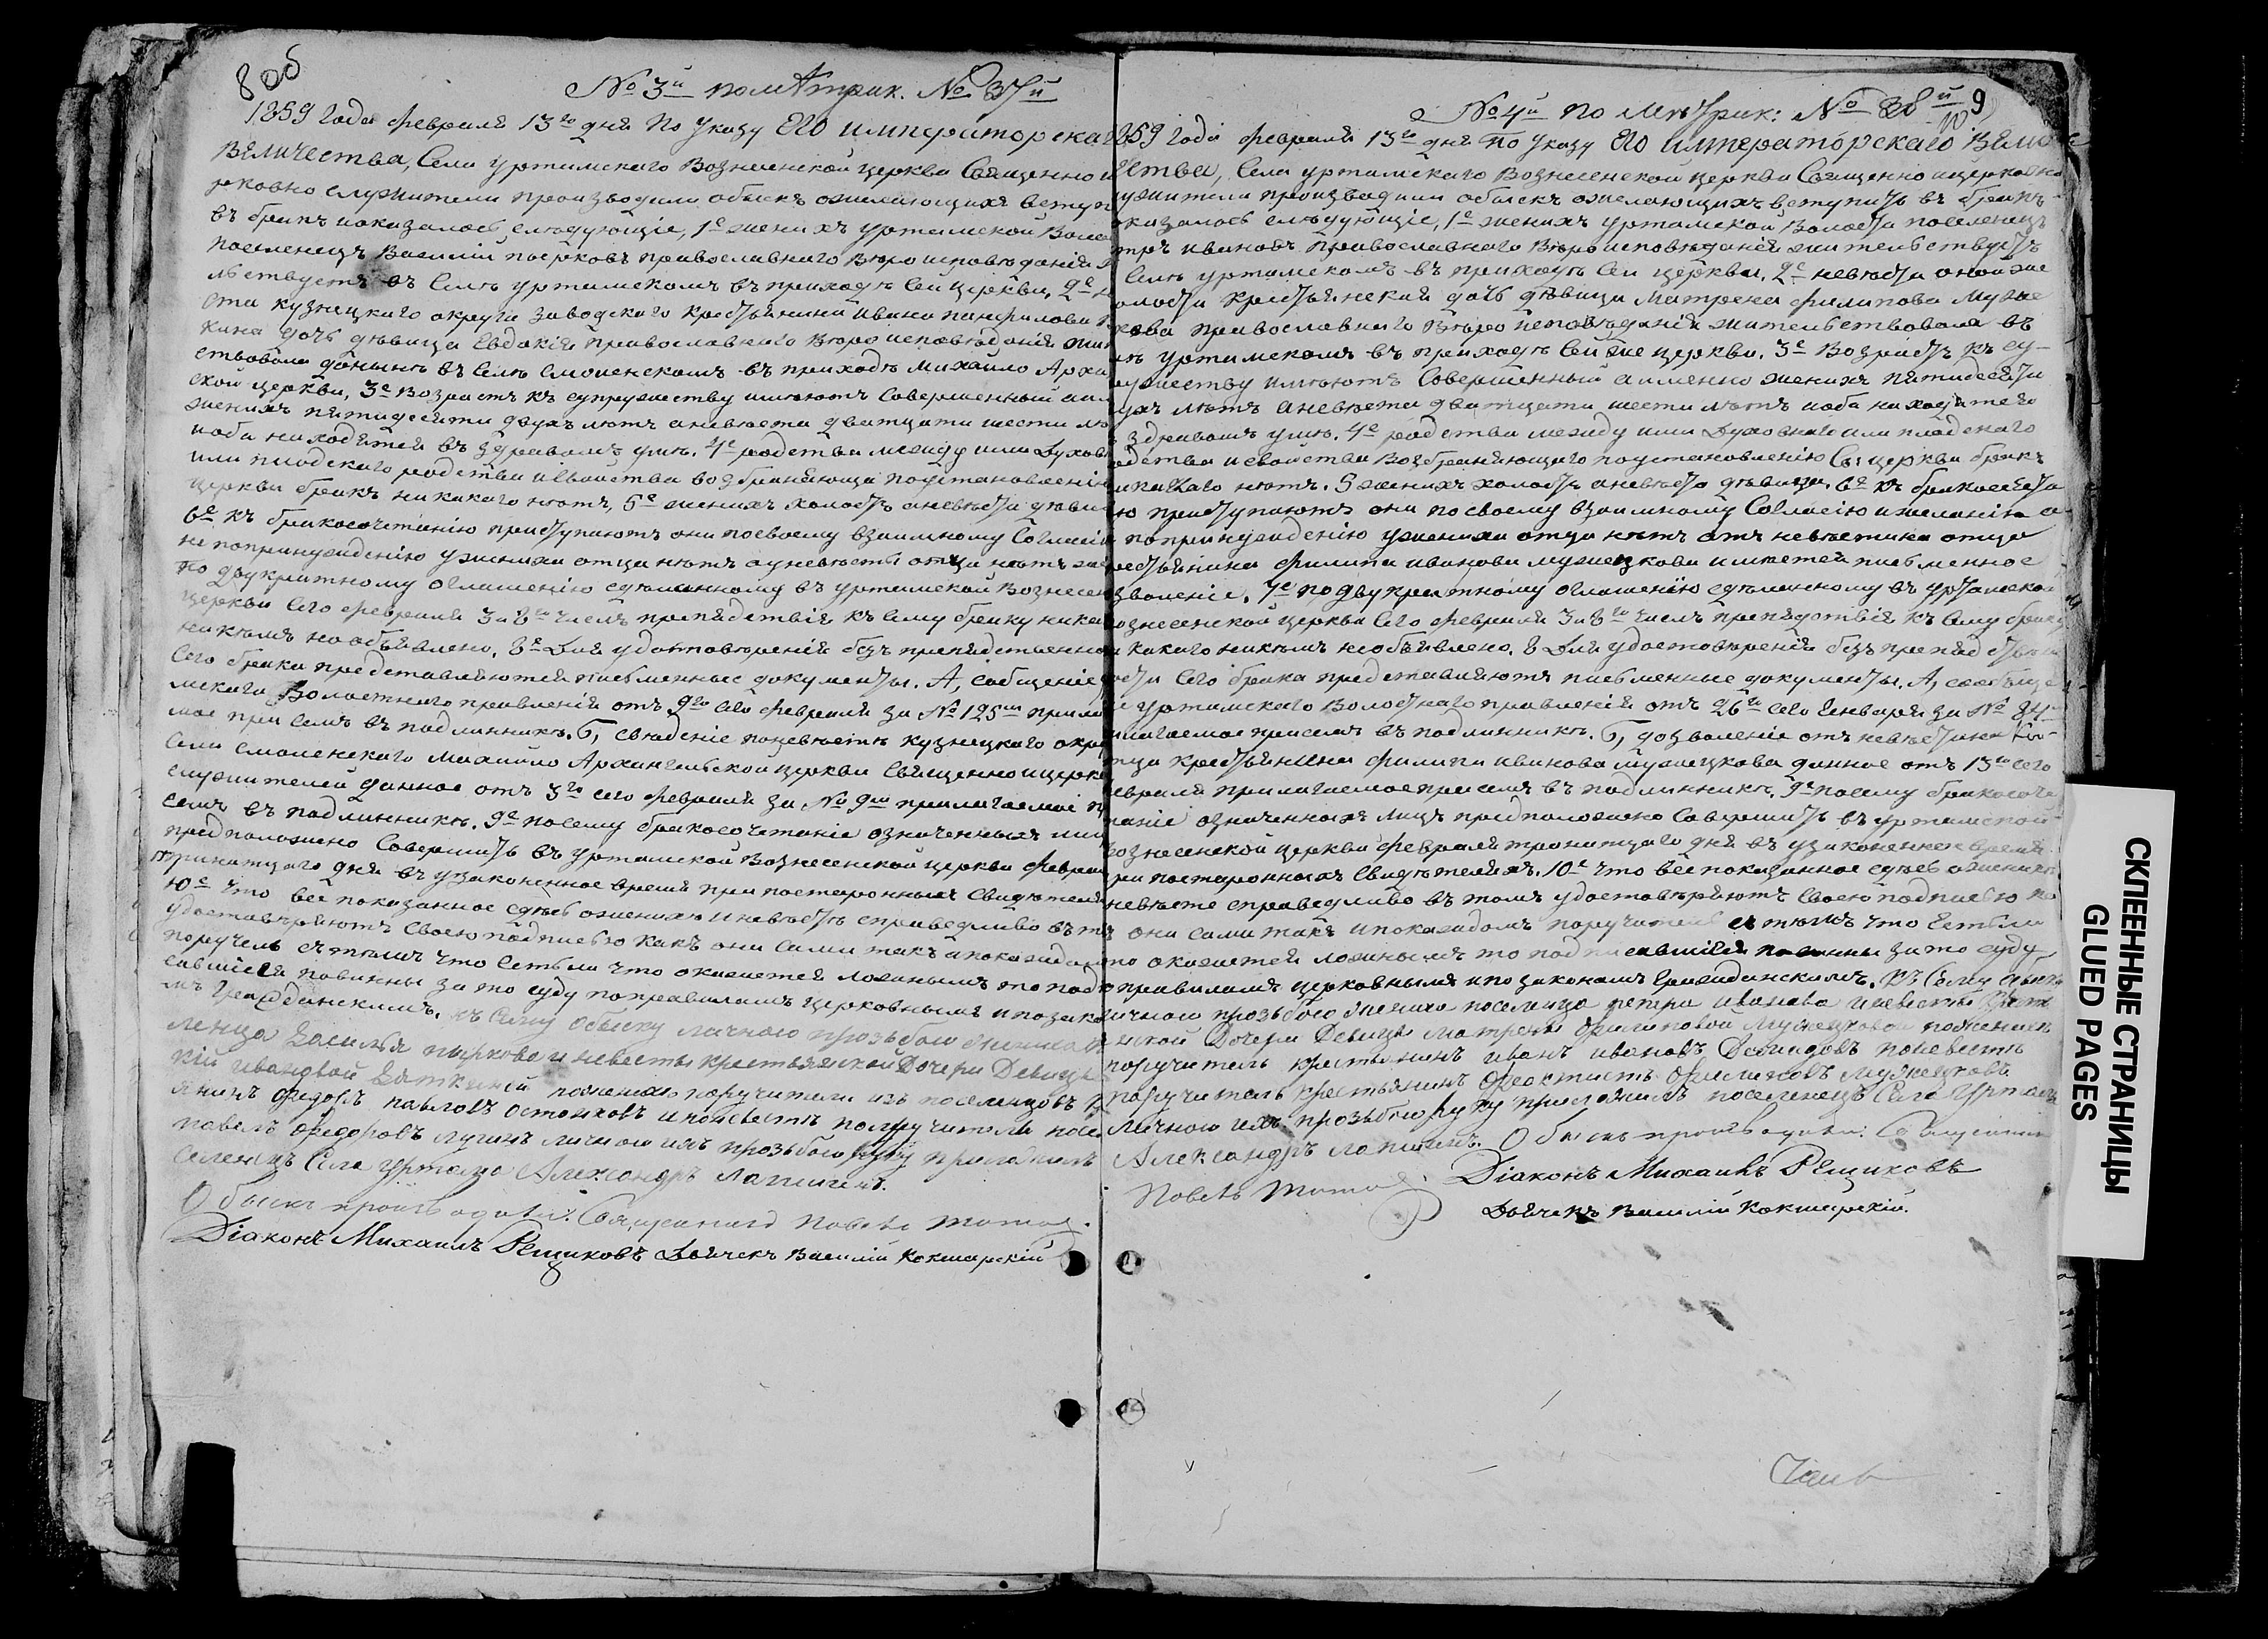 8 об
№ 3й по метрик. № 37й
1859 года февраля 13го дня По Указу Его императорска
Величества, Села уртамскаго Вознесенской церкви Священно и
рковно служители производили обыскъ ожелающихъ вступ
въ бракъ иоказалось слѣдующіе, 1е женихъ уртамской Воло
поселенецъ Василій пырковъ православнаго Вѣро исповѣданія
льствуетъ въ Селѣ уртамскомъ въ приходѣ Сей церкви, 2е
сти кузнецкаго округа заводскаго крестьянина ивана панфилова
кина дочь дѣвица Евдокія православнаго Вѣро исповѣданія жи
ствовала донынѣ въ Селѣ Смоленскомъ въ приходѣ Михайло Арха
ской церкви, 3е Возрастъ къ супружеству имѣютъ Совершенный
женихъ пятидесяти двухъ лѣтъ аневѣста дватцати шести лѣ
иоба находятся въ здравомъ умѣ. 4е родства между ими Духов
или плодскаго родства исвойства возбраняюща поустановленію
церкви бракъ никакого нѣтъ, 5е женихъ холостъ аневѣста дѣви
6е къ бракосочетанію приступаютъ они посвоему взаимному Согласі
непопринужденію ужениха отца нѣтъ ауневѣсты отца нѣтъ
по двукратному оглашенію сдѣланному въ уртамской Вознесен
церкви Сего февраля 3 и 8го числъ препядствія къ Сему браку ника
никѣмъ необъявлено, 8е Для удостовѣренія безъ препядственно
Сего брака представляются письменные документы. А, сообщеніе
мскаго Волостнаго правленія отъ 9го сего февраля за № 125м прила
мое при семъ въ подлинникѣ. Б, сведѣніе поневѣстѣ кузнецкаго окру
Села Смоленскаго Михайло Архангельской церкви Священно ицерко
служителей данное отъ 3го сего февраля за № 9м прилагаемое п
семъ въ подлинникѣ. 9е посему бракосочетаніе означенныхъ лиц
предположено Совершить въ уртамской Вознесенской церкви февра
тринатцаго дня въ узаконенное время при постороннихъ Свидѣтеля
10е что всё показанное сдѣсь оженихѣ иневѣстѣ справедливо въ то
удостовѣряютъ Своею подписью какъ они сами такъ ипокаждом
поручель стѣмъ что Естьли что окажется ложнымъ то под
савшіеся повинны за то суду поправиламъ церковнымъ ипозако
мъ Гражданскимъ. къ Сему обыску личною прозьбою жениха
ленца Василья пыркова и невесты крестьянской Дочери Девицы
кіи Ивановой поженихѣ поручители изъ поселенцовъ
янинъ Федоръ павловъ остонковъ ипоневестѣ поручители посе
павелъ Федоровъ лугинъ личною ихъ прозьбою руку приложилъ
селенецъ Села Уртама Александръ лапшинъ.
Обыскъ производили: Священникъ Павелъ
Діаконъ Михаилъ Рещиковъ Дьячекъ Василій Кокшарскій
9
10
№ 4й По Метрик: № 38й
859 года февраля 13го дня По Указу Его императорскаго Велич
чества, Села уртамскаго Вознесенской церкви Священно ицерковно
ужители производили обыскъ ожелающихъ вступить въ бракъ
оказалось слѣдующіе, 1е женихъ уртамской Волости поселенецъ
тръ ивановъ православнаго Вѣро исповѣданія жительствуетъ
Селѣ уртамскомъ въ приходѣ Сей церкви. 2е невѣста оной же
олости Крестьянская дочь дѣвица Матрена филипова Муже
кова православнаго Вѣро исповѣданія жительствовала въ
лѣ уртамскомъ въ приходѣ Сей же церкви. 3е Возрастъ къ су-
ружеству имѣютъ Совершенный аименно женихъ пятидесяти
ухъ лѣтъ аневѣста дватцати шести лѣтъ иоба находятся
здравомъ умѣ. 4е родства между ими Духовнаго или плодскаго
одства исвойства Возбраняющаго поустановленію Св: церкви бракъ
икакаго нѣтъ. 5 женихъ холостъ аневѣста дѣвица. 6е къ бракосочета
ю приступаютъ они посвоему взаимному Согласію ижеланію а
попринужденію ужениха отца нѣтъ отъ невѣстина отца
рестьянина филипа иванова мужецкова имѣется письменное
зволеніе. 7е подвукратному оглашенію сдѣланному въ уртамской
ознесенской церкви Сего февраля 3 и 8го числъ препядствія къ Сему браку
какого никѣмъ необъявлено. 8 Для удостовѣренія безъ препядствен
ости Сего брака представляютъ письменные документы. А, сообще
е уртамскаго Волостнаго правленія отъ 26го сего Генваря за № 84м
илагаемое присемъ въ подлинникѣ. Б, дозволеніе отъ невѣстина
тца крестьянина филипа иванова мужецкова данное отъ 13го сего
евраля прилагаемое присемъ въ подлинникѣ. 9е посему бракосоче
таніе означенныхъ лицъ предположено Совершить въ уртамской
ознесенской церкви февраля тринатцаго дня въ узаконенное время
ри постороннихъ Свидѣтеляхъ. 10е что всё показанное сдѣсь оженихѣ
невѣсте справедливо въ томъ удостовѣряютъ Своею подписью ка
они сами такъ ипокаждомъ поручители стѣмъ что Естьли
то окажется ложнымъ то подписавшіеся повинны за то суду
оправиламъ церковнымъ ипозаконамъ Гражданскимъ. къ Сему обыску
ичною прозьбою жениха поселенца петра Иванова иневесты Крест
янской Дочери Девицы Матрены Филиповой Мужецковой поженихѣ
поручитель крестьянинъ иванъ ивановъ Демидовъ поневестѣ
поручитель крестьянинъ Феоктистъ Филиповъ Мужецковъ
личною ихъ прозьбою руку приложилъ поселенецъ Села Уртама
Александръ лапшинъ. Обыскъ производили: Священникъ
Павелъ Діаконъ Михаилъ Рещиковъ
Дьячекъ Василій Кокшарскій.
СКЛЕЕННЫЕ СТРАНИЦЫ
GLUED PAGES